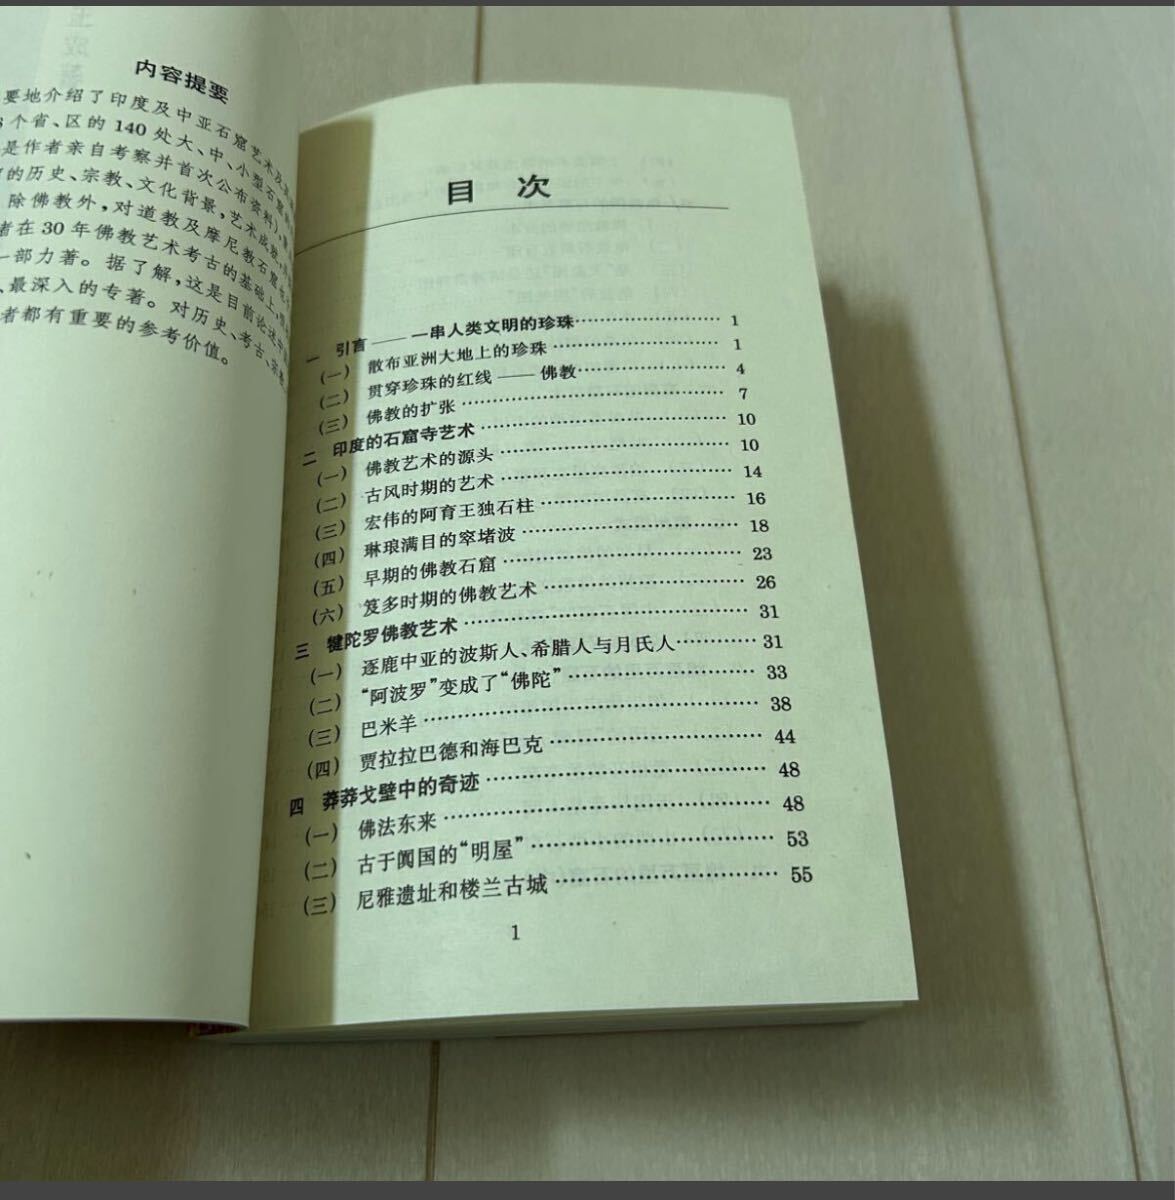 内容提要
要地介绍了印度及中亚石窟艺术及
个省、区的 140 处大、中、小型石窟
是作者亲自考察并首次公布资料),
的历史、宗教、文化背景,艺术成就,
除佛教外,对道教及摩尼教石窟
者在 30 年佛教艺术考古的基础上,
一部力著。据了解,这是目前论述
、最深入的专著。对历史、考古、宗教、
者都有重要的参考价值。
目 次
一 引言——一串人类文明的珍珠………………… 1
(一) 散布亚洲大地上的珍珠………………… 1
(二) 贯穿珍珠的红线——佛教………………… 4
(三) 佛教的扩张………………… 7
二 印度的石窟寺艺术………………… 10
(一) 佛教艺术的源头………………… 10
(二) 古风时期的艺术………………… 14
(三) 宏伟的阿育王独石柱………………… 16
(四) 琳琅满目的窣堵波………………… 18
(五) 早期的佛教石窟………………… 23
(六) 笈多时期的佛教艺术………………… 26
三 犍陀罗佛教艺术………………… 31
(一) 逐鹿中亚的波斯人、希腊人与月氏人………… 31
(二) “阿波罗”变成了“佛陀”………………… 33
(三) 巴米羊………………… 38
(四) 贾拉拉巴德和海巴克………………… 44
四 莽莽戈壁中的奇迹………………… 48
(一) 佛法东来………………… 48
(二) 古于阗国的“明屋”………………… 53
(三) 尼雅遗址和楼兰古城………………… 55
1